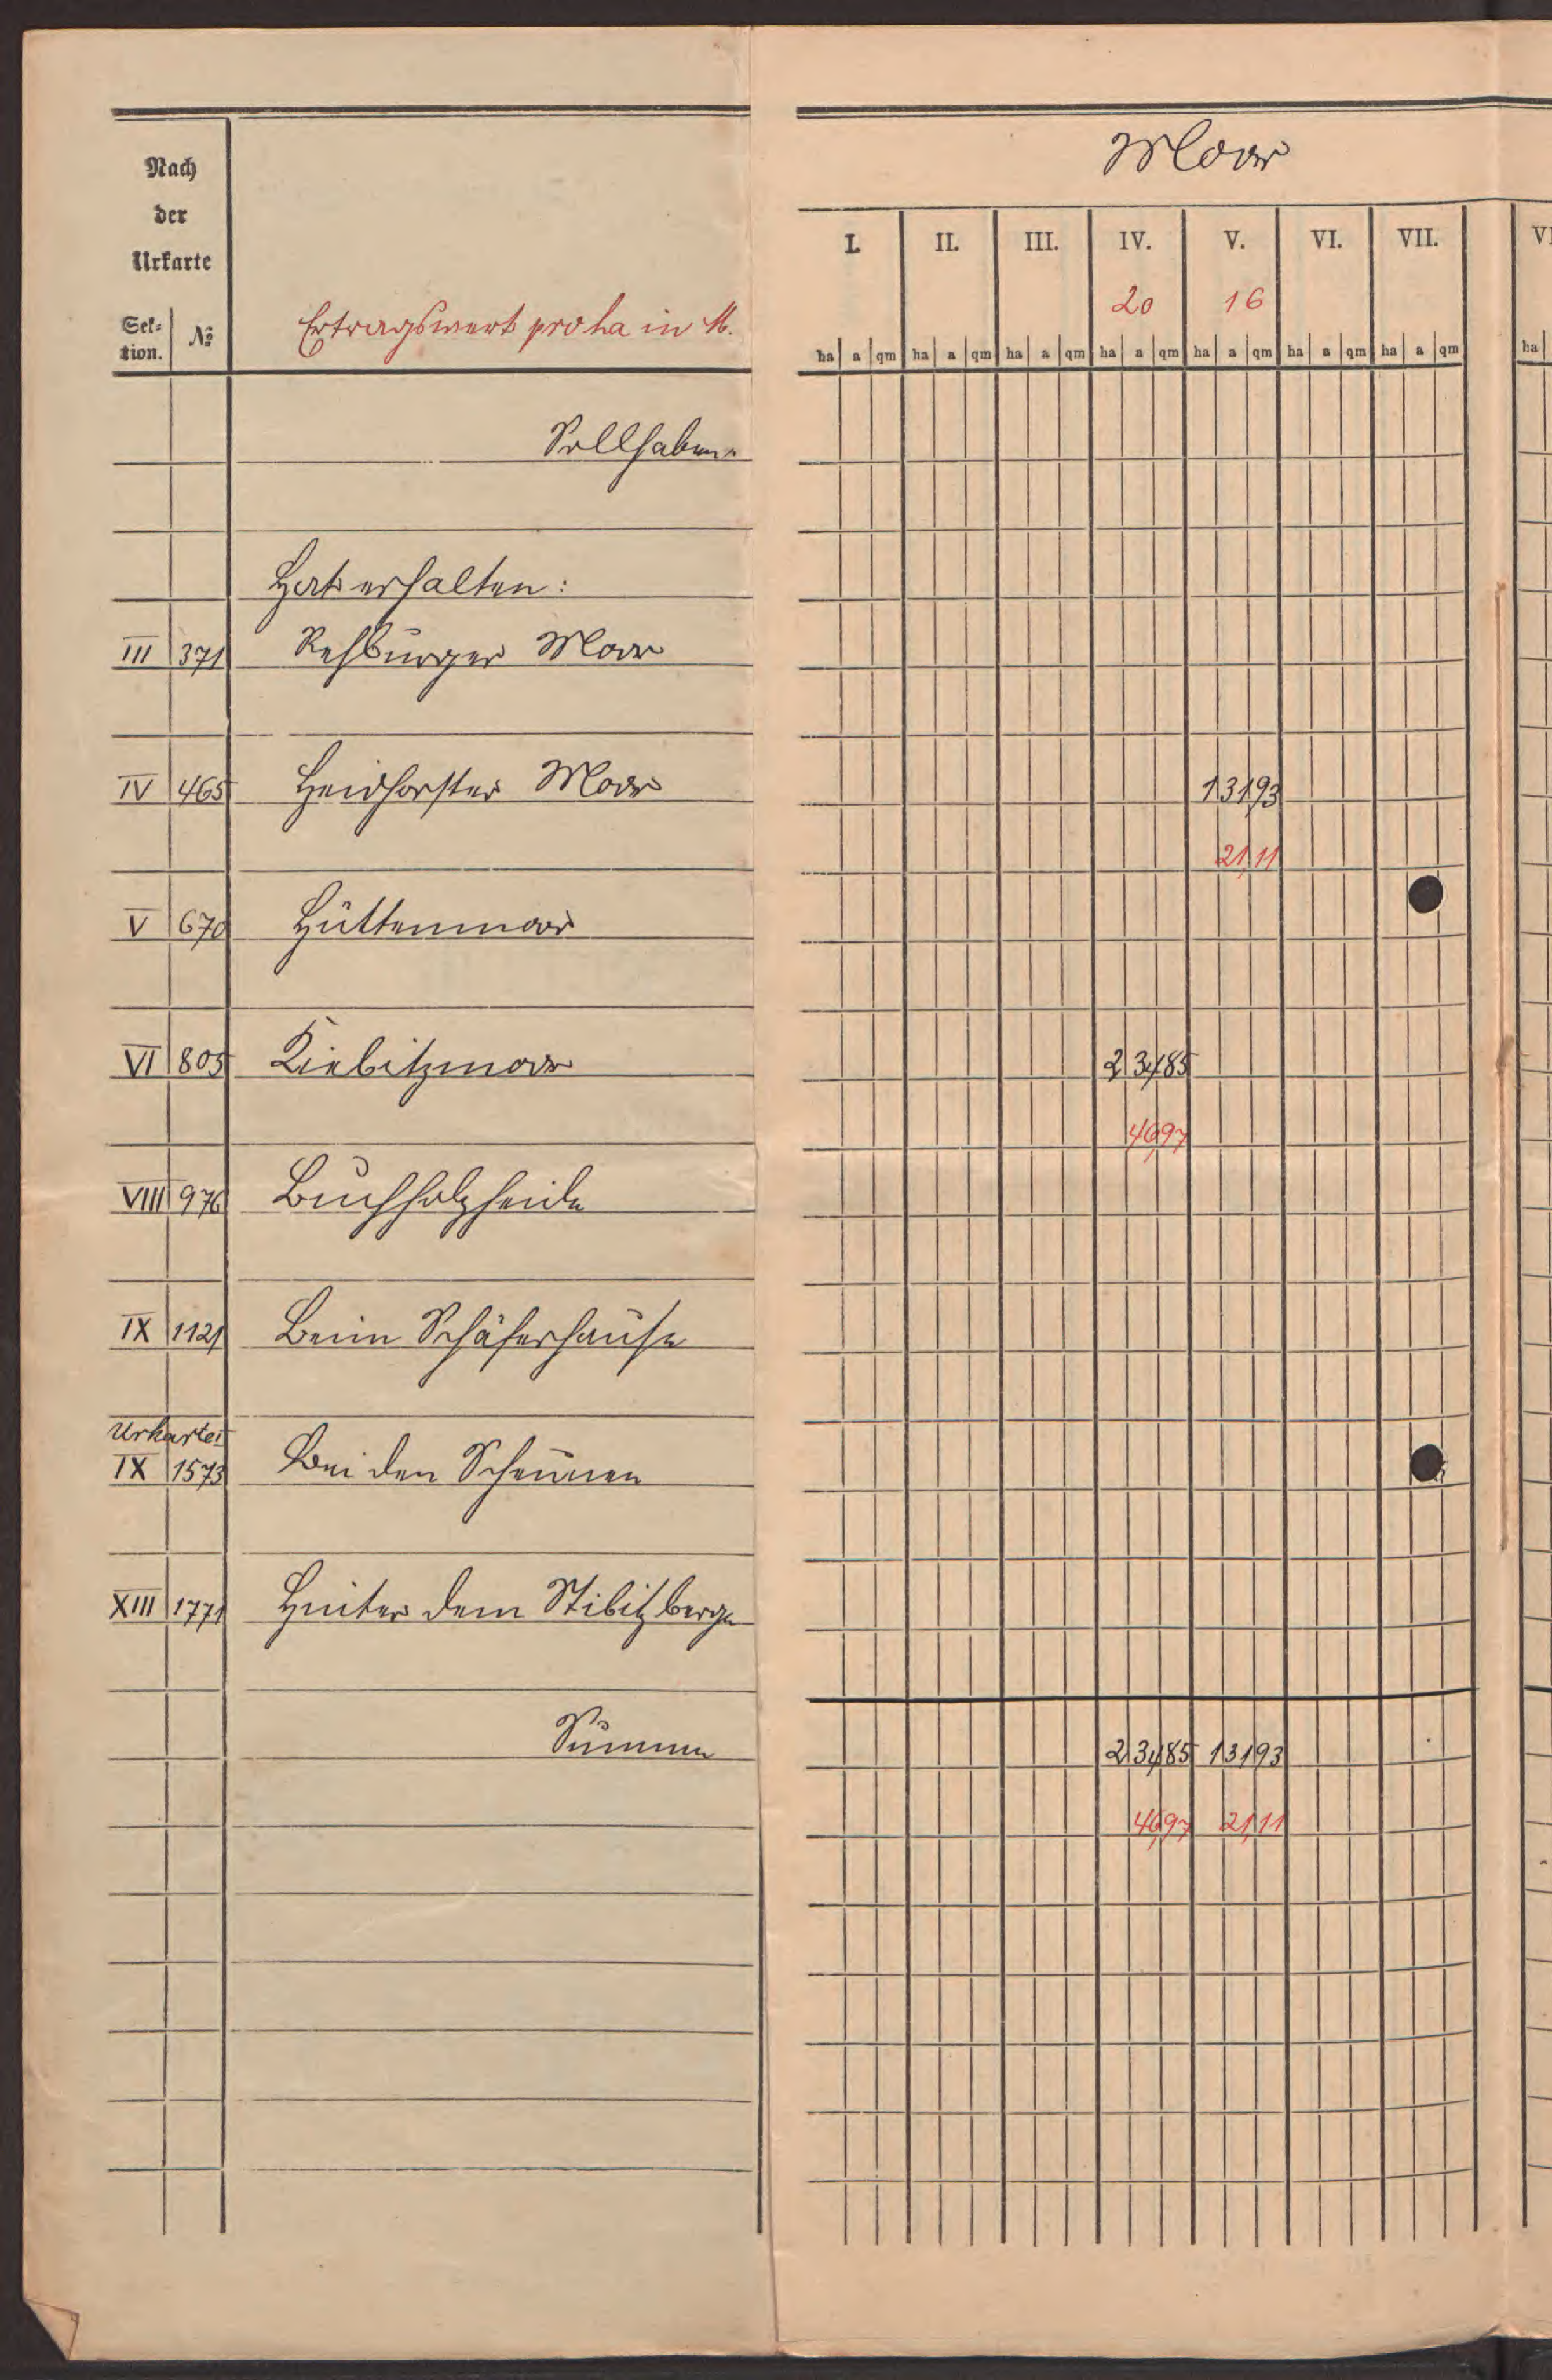 Nach
der
Urkarte
Sek-
tion. | № | Ertragswert pro ha in M.
Moor
I. II. III. IV. V. VI. VII. VI
20 16
ha a qm ha a qm ha a qm ha a qm ha a qm ha a qm ha a qm ha
Sollhaben
Hat erhalten:
III 371 Rehburger Moor
IV 465 Heidhorster Moor 1 31 93
21,11
V 670 Hüttenmoor
VI 805 Kiebitzmoor 2 34 85
46,97
VIII 976 Buchholzheide
IX 1121 Beim Schäferhause
Urkarte I
IX 1573 Bei den Scheunen
XIII 1771 Hinter dem Stibitzberge
Summa 2 34 85 1 31 93
46,97 21,11